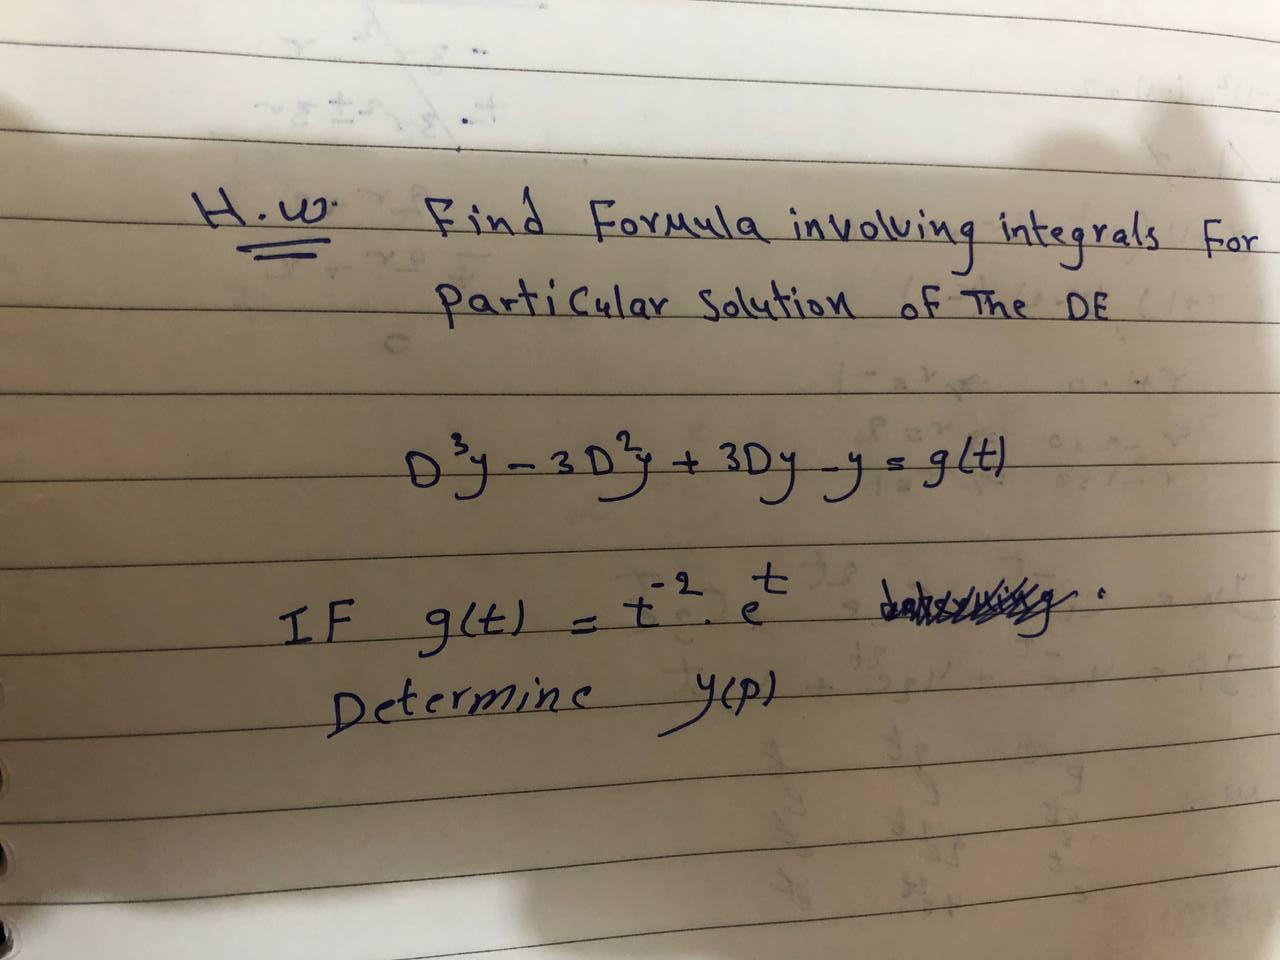 H.w. Find Formula involving integrals For
particular solution of The DE
D³y - 3D²y + 3Dy - y = g(t)
IF g(t) = t⁻² . eᵗ
Determine y(p)